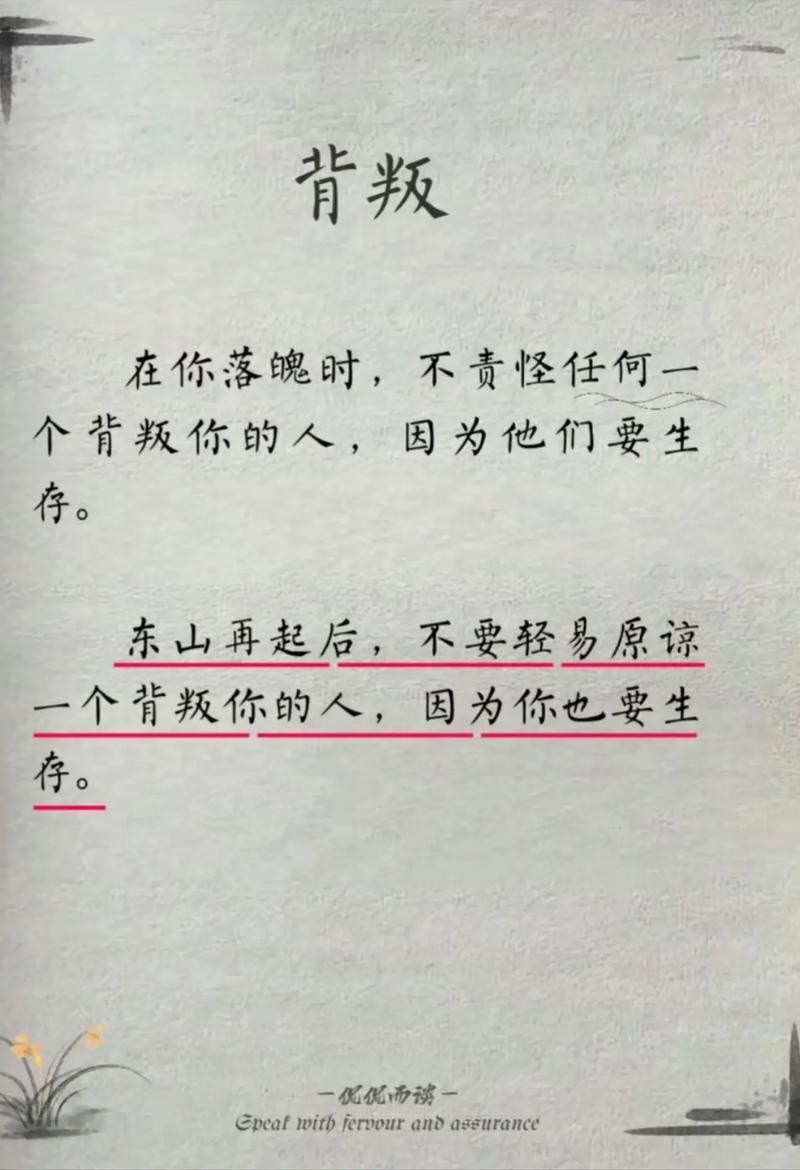 背叛
在你落魄时，不责怪任何一
个背叛你的人，因为他们要生
存。
东山再起后，不要轻易原谅
一个背叛你的人，因为你也要生
存。
－侃侃而谈－
Speak with fervour and assurance